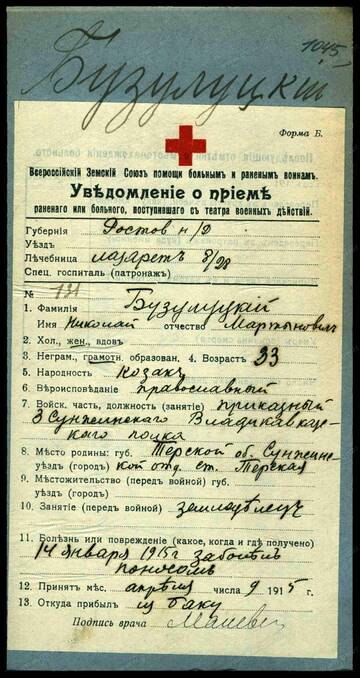 1045
Бузулуцкій
Форма Б.
Всероссійскій Земскій Союзъ помощи больнымъ и раненымъ воинамъ.
Увѣдомленіе о пріемѣ
раненаго или больного, поступившаго съ театра военныхъ дѣйствій.
Губернія Ростов н/Д
Уѣздъ
Лѣчебница лазаретъ 8/28
Спец. госпиталь (патронажъ)
№ 131
1. Фамилія Бузулуцкій
Имя Николай отчество Мартынович
2. Хол., жен., вдовъ
3. Неграм., грамотн. образован. 4. Возрастъ 33
5. Народность козакъ
6. Вѣроисповѣданіе православный
7. Войск. часть, должность (занятіе) приказный
3 Сунженскаго Владикавказ-
скаго полка
8. Мѣсто родины: губ. Терской об. Сунжен-
уѣздъ (городъ) кой отд. ст. Терская
9. Мѣстожительство (передъ войной) губ.
уѣздъ (городъ)
10. Занятіе (передъ войной) земледѣлецъ
11. Болѣзнь или поврежденіе (какое, когда и гдѣ получено)
14 января 1915г заболѣлъ
поносомъ
12. Принятъ мѣс. апрѣля числа 9 1915 г.
13. Откуда прибылъ из Баку
Подпись врача